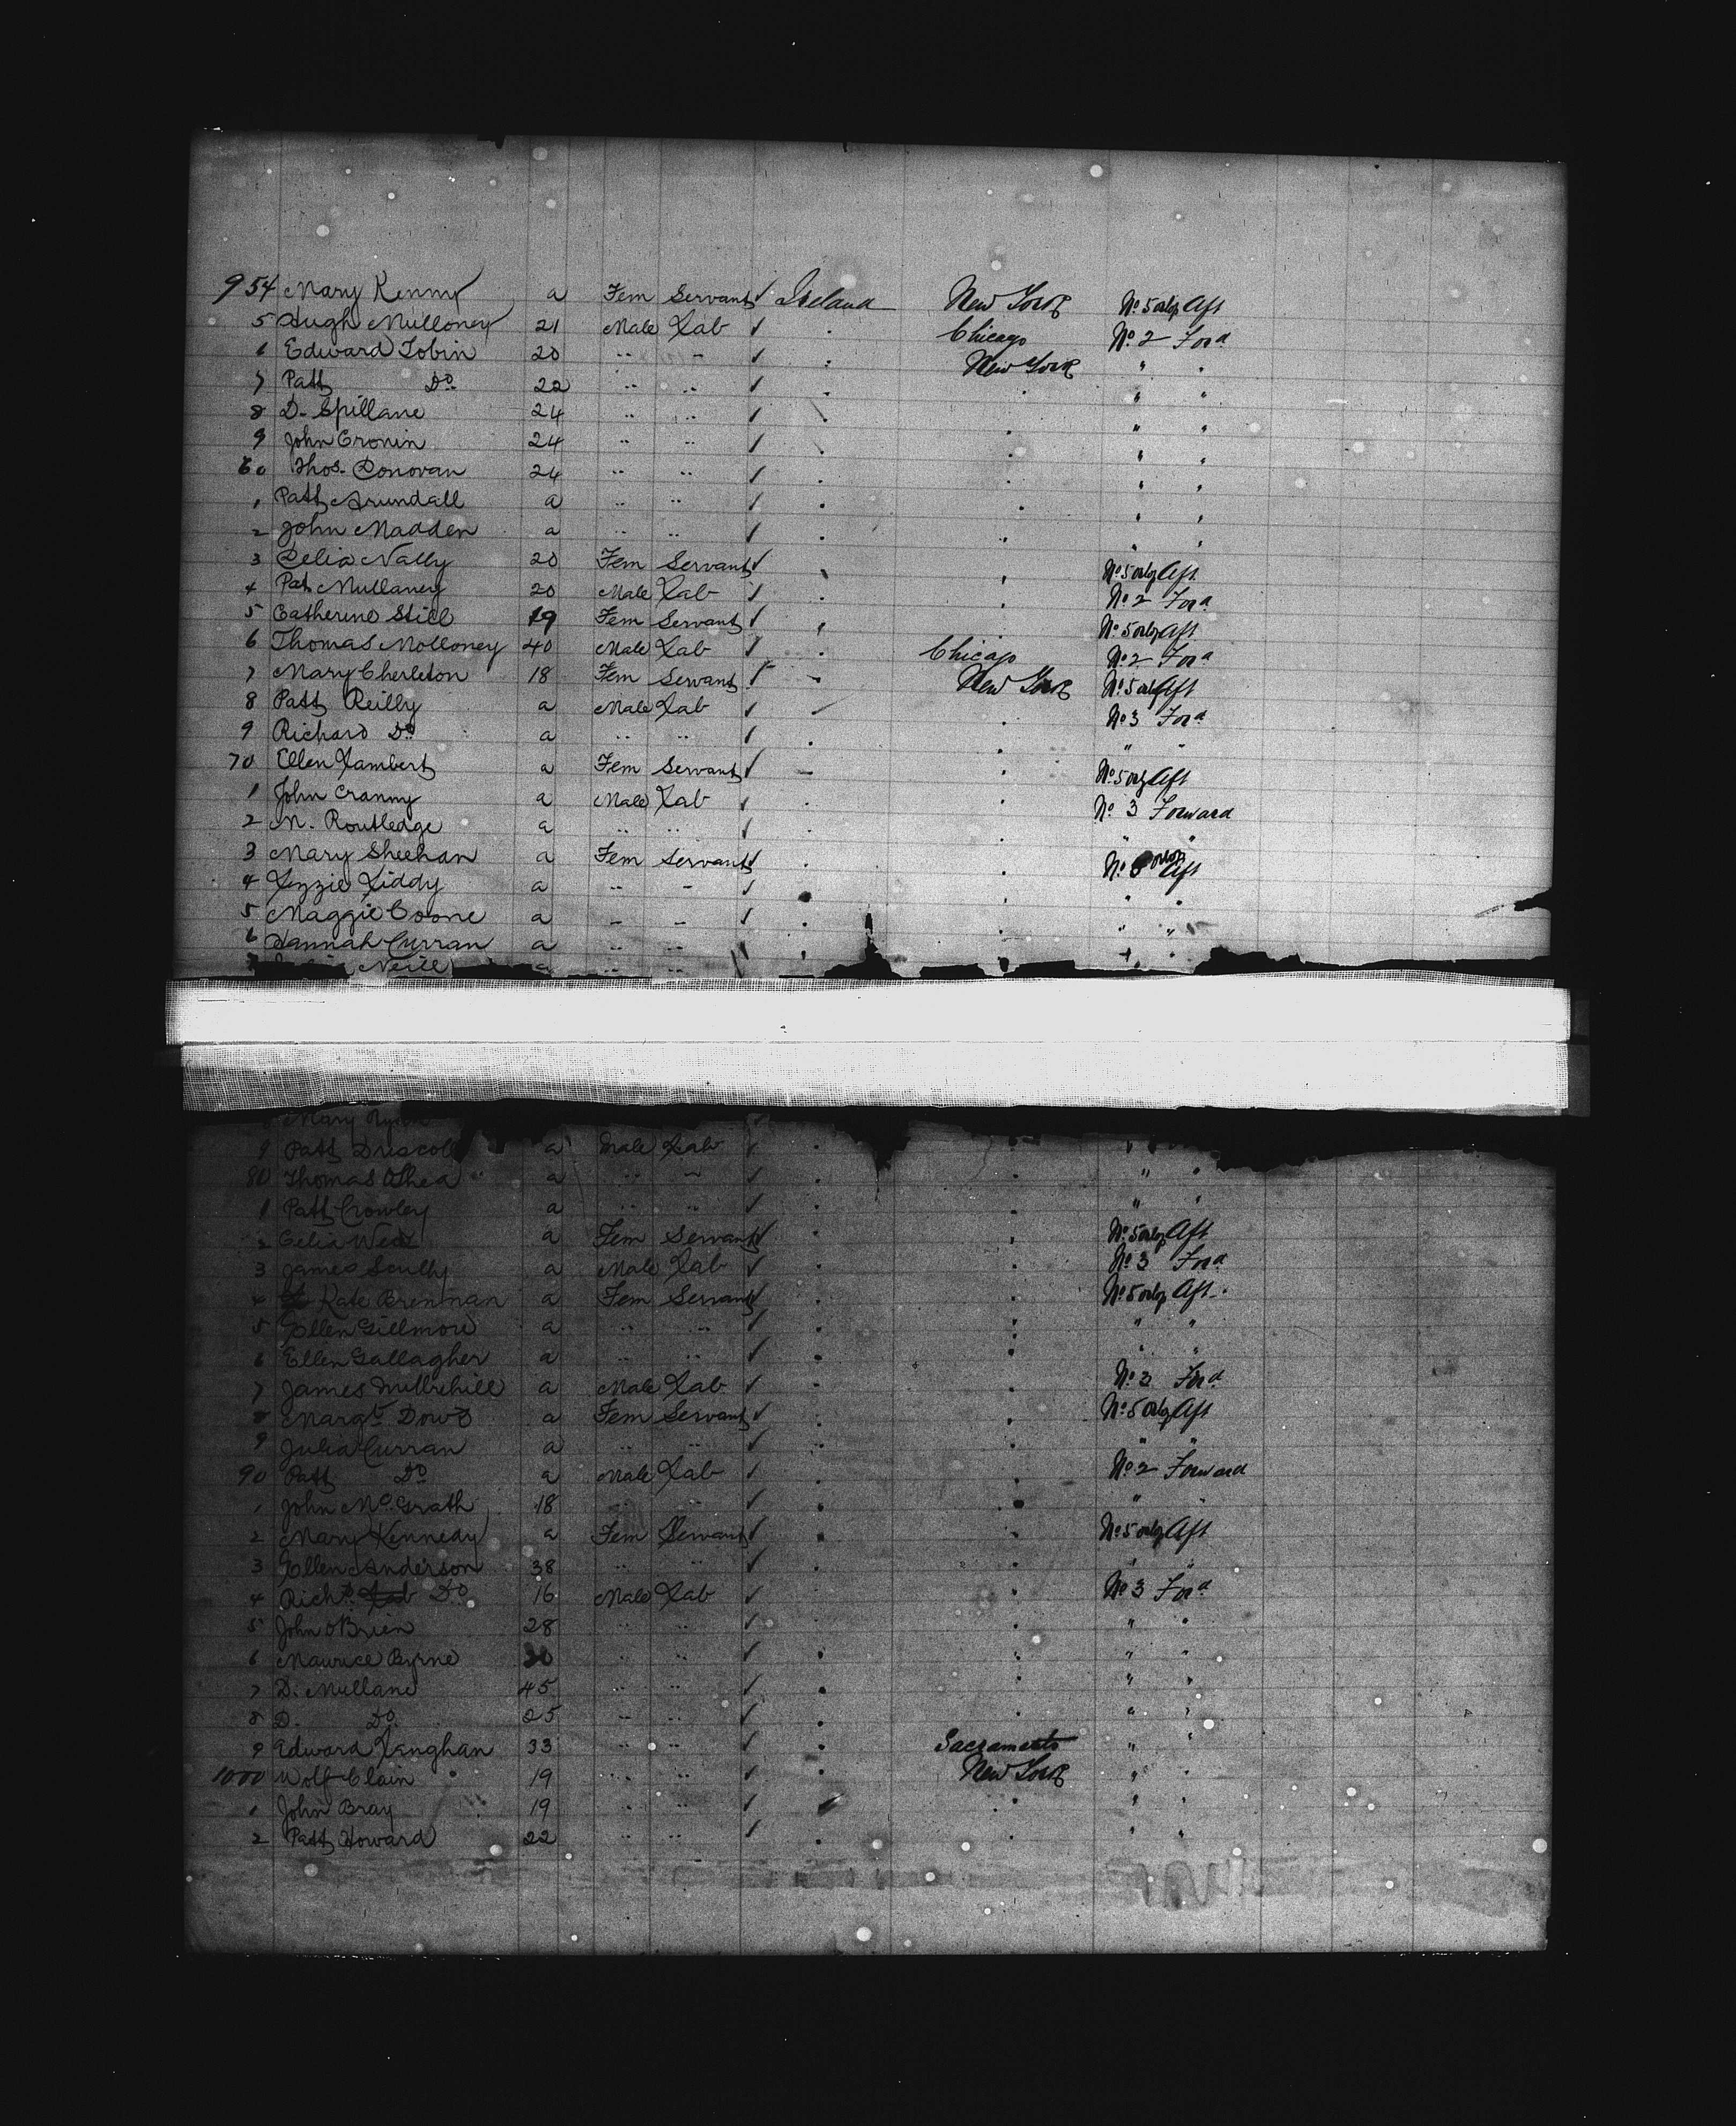 954 Mary Kenny a Fem Servant Ireland New York No 5 orlop Aft
5 Hugh Mulloney 21 Male Lab Chicago No 2 Ford
6 Edward Tobin 20 " " New York " "
7 Patt Do 22 " " " "
8 D. Spillane 24 " " " "
9 John Cronin 24 " " " "
60 Thos. Donovan 24 " " " "
1 Patt Arundall a " " " "
2 John Madden a " " " "
3 Delia Nally 20 Fem Servant No 5 orlop Aft
4 Pat Mullaney 20 Male Lab No 2 Ford
5 Catherine Still 19 Fem Servant No 5 orlop Aft
6 Thomas Molloney 40 Male Lab Chicago No 2 Ford
7 Mary Cherleton 18 Fem Servant New York No 5 orlop Aft
8 Patt Reilly a Male Lab No 3 Ford
9 Richard Do a " " " "
70 Ellen Lambert a Fem Servant No 5 orlop Aft
1 John Cranny a Male Lab No 3 Forward
2 M. Routledge a " " " "
3 Mary Sheehan a Fem Servant No 5 orlop Aft
4 Lizzie Liddy a " " " "
5 Maggie Coone a " " " "
6 Hannah Curran a " " " "
Neill a " "
Mary Ryan
9 Patt Driscoll a Male Lab " "
80 Thomas OShea a " " " "
1 Patt Crowley a " " " "
2 Celia West a Fem Servant No 5 orlop Aft
3 James Scully a Male Lab No 3 Ford
4 Kate Brennan a Fem Servant No 5 orlop Aft
5 Ellen Gillmore a " " " "
6 Ellen Gallagher a " " " "
7 James Mulvehill a Male Lab No 2 Ford
8 Margt Dowd a Fem Servant No 5 orlop Aft
9 Julia Curran a " " " "
90 Patt Do a Male Lab No 2 Forward
1 John McGrath 18 " " " "
2 Mary Kennedy a Fem Servant No 5 orlop Aft
3 Ellen Anderson 38 " " " "
4 Richd Lab Do 16 Male Lab No 3 Ford
5 John OBrien 28 " " " "
6 Maurice Byrne 30 " " " "
7 D. Mullane 45 " " " "
8 D. Do 25 " " " "
9 Edward Langhan 33 " " Sacramento " "
1000 Wolf Clain 19 " " New York " "
1 John Bray 19 " " " "
2 Patt Howard 22 " " " "